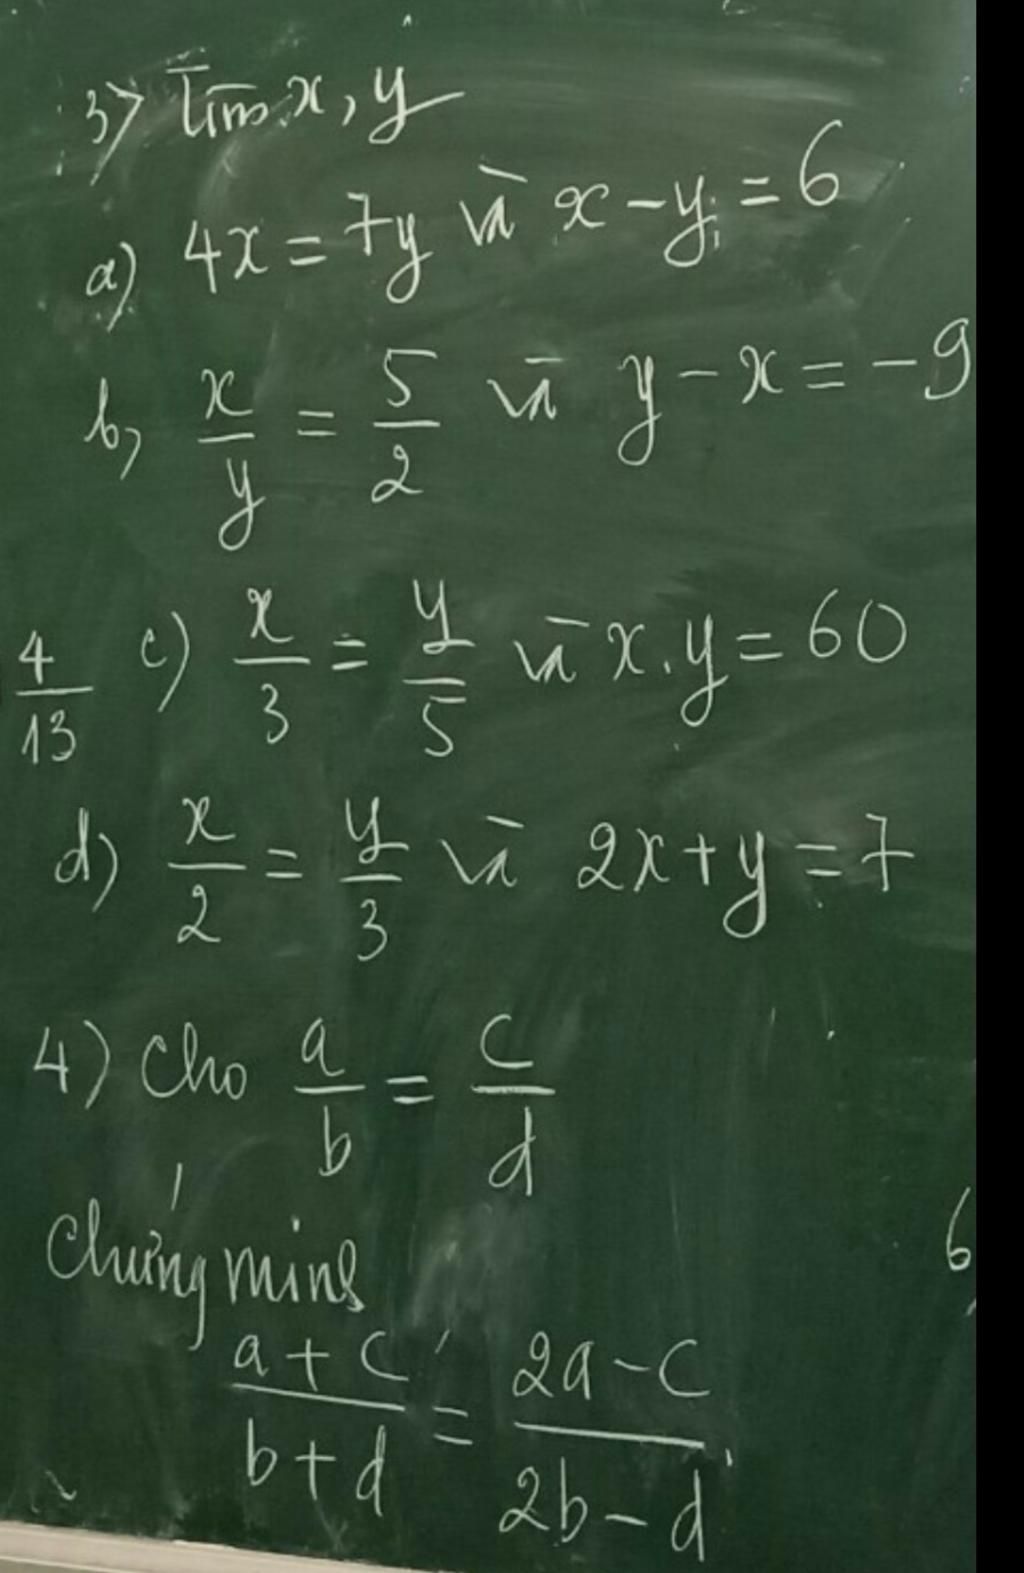 3) Tìm x, y
a) 4x = 7y và x - y = 6
b, x/y = 5/2 và y - x = -9
4/13
c) x/3 = y/5 và x.y = 60
d) x/2 = y/3 và 2x + y = 7
4) Cho a/b = c/d
Chứng minh
6
(a + c)/(b + d) = (2a - c)/(2b - d)